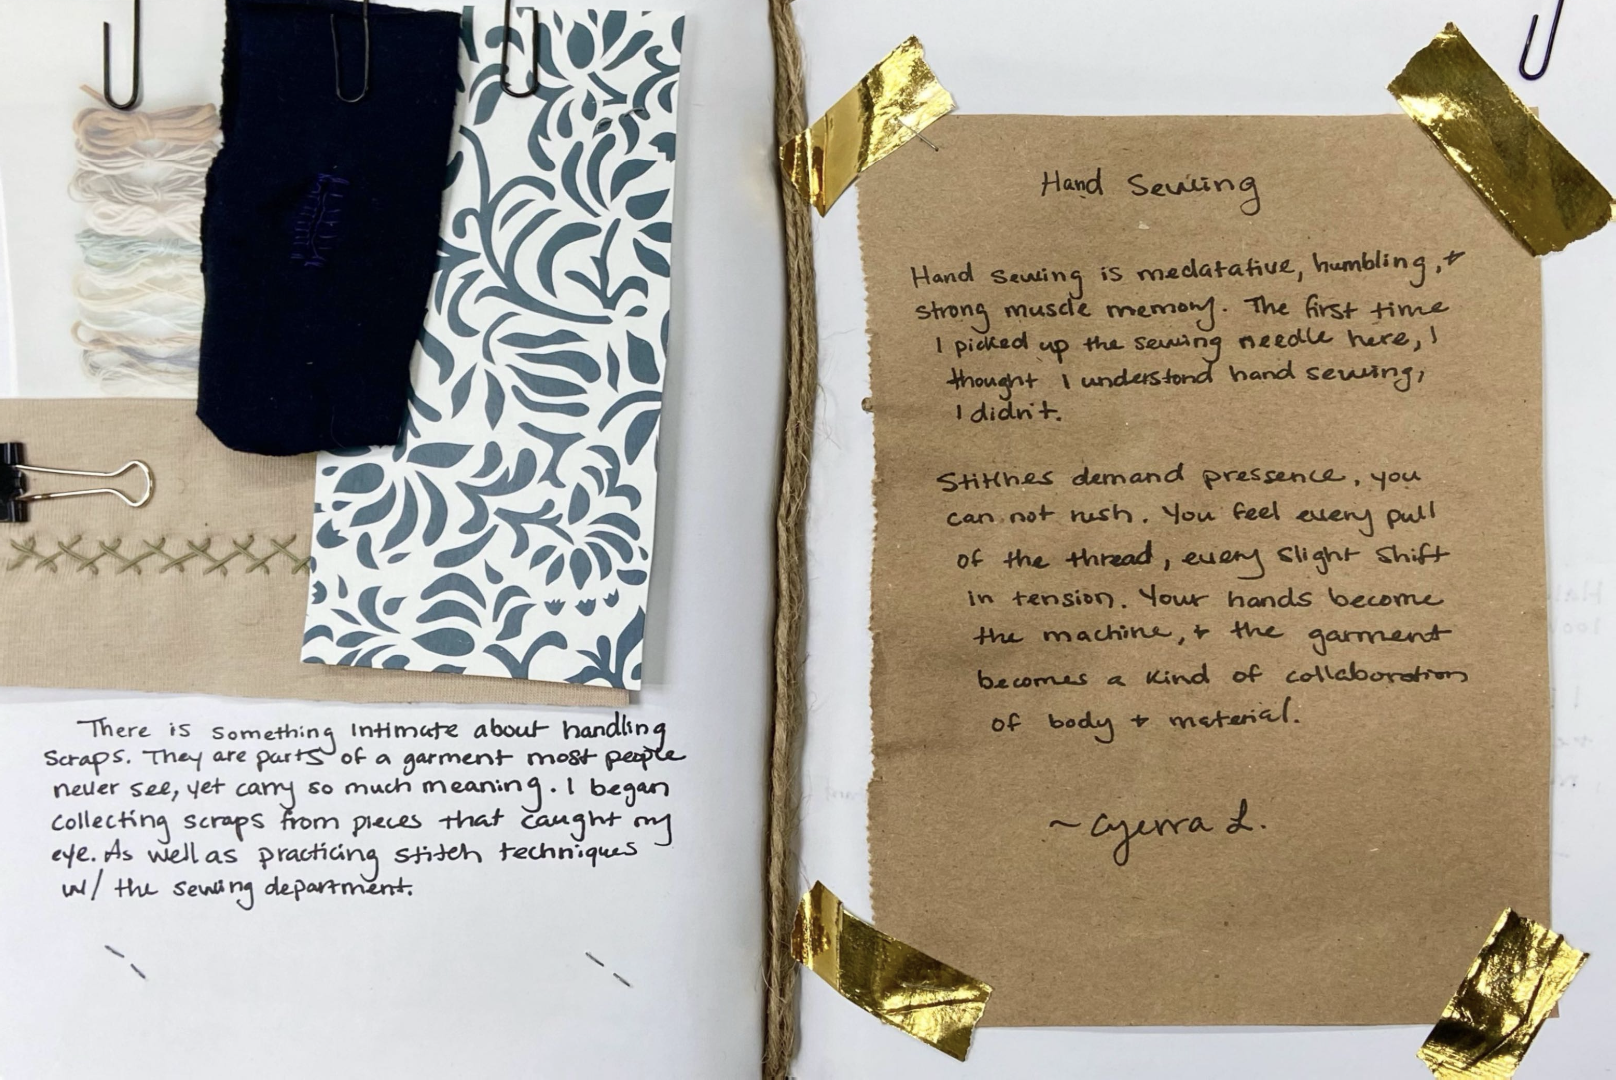 There is something intimate about handling
scraps. They are parts of a garment most people
never see, yet carry so much meaning. I began
collecting scraps from pieces that caught my
eye. As well as practicing stitch techniques
w/ the sewing department.
Hand Sewing
Hand sewing is medatative, humbling, +
strong muscle memory. The first time
I picked up the sewing needle here, I
thought I understond hand sewing,
I didn't.
Stitches demand pressence, you
can not rush. You feel every pull
of the thread, every slight shift
in tension. Your hands become
the machine, + the garment
becomes a kind of collaboration
of body + material.
~ L.